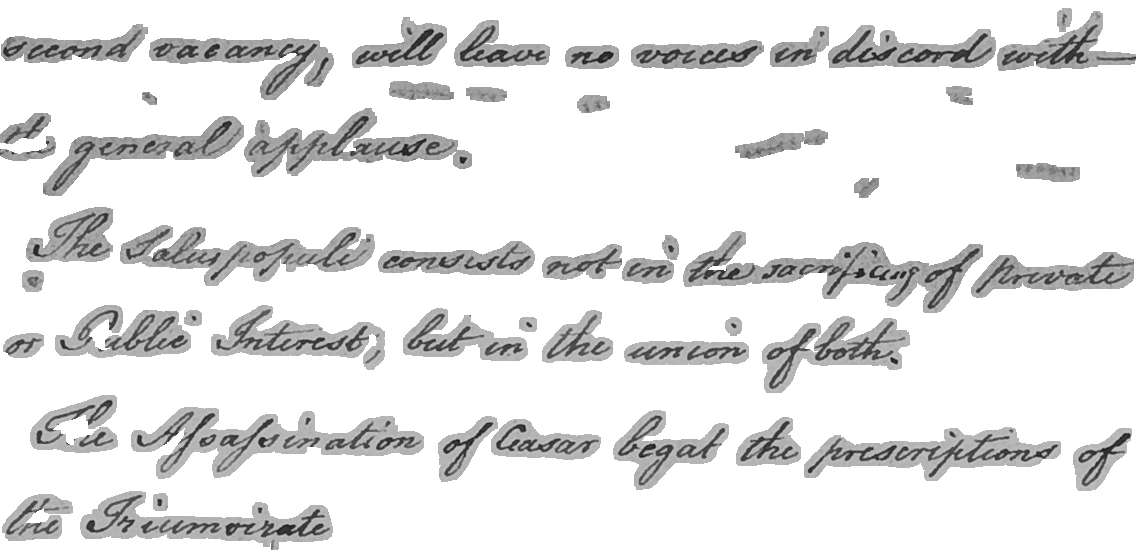 second vacancy, will leave no voices in discord with—
t general applause.
The Salus populi consists not in the sacrificing of private
or Public Interest, but in the union of both.
The Assassination of Ceasar begat the prescriptions of
the Triumvirate